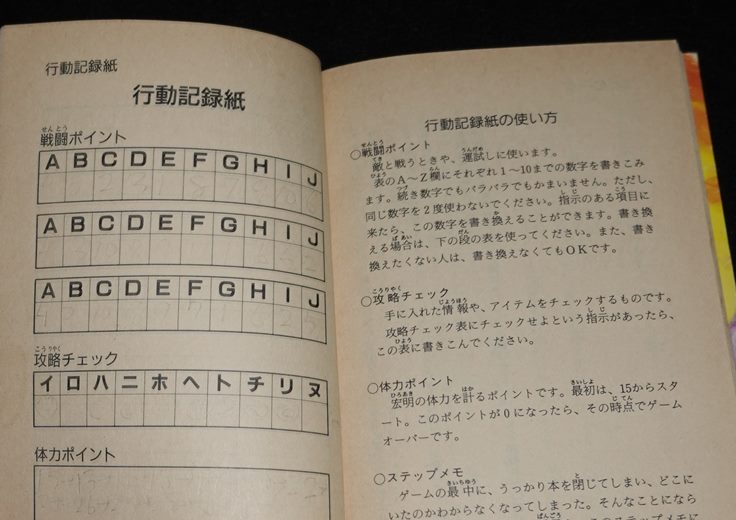 行動記録紙
行動記録紙
戦闘ポイント
A B C D E F G H I J
A B C D E F G H I J
A B C D E F G H I J
攻略チェック
イ ロ ハ ニ ホ ヘ ト チ リ ヌ
体力ポイント
行動記録紙の使い方
○戦闘ポイント
敵と戦うときや、運試しに使います。
表のA〜Z欄にそれぞれ1〜10までの数字を書きこみ
ます。続き数字でもバラバラでもかまいません。ただし、
同じ数字を2度使わないでください。指示のある項目に
来たら、この数字を書き換えることができます。書き換
える場合は、下の段の表を使ってください。また、書き
換えたくない人は、書き換えなくてもOKです。
○攻略チェック
手に入れた情報や、アイテムをチェックするものです。
攻略チェック表にチェックせよという指示があったら、
この表に書きこんでください。
○体力ポイント
宏明の体力を計るポイントです。最初は、15からスタ
ート。このポイントが0になったら、その時点でゲーム
オーバーです。
○ステップメモ
ゲームの最中に、うっかり本を閉じてしまい、どこに
いたのかわからなくなってしまった。そんなことになら
このステップメモに